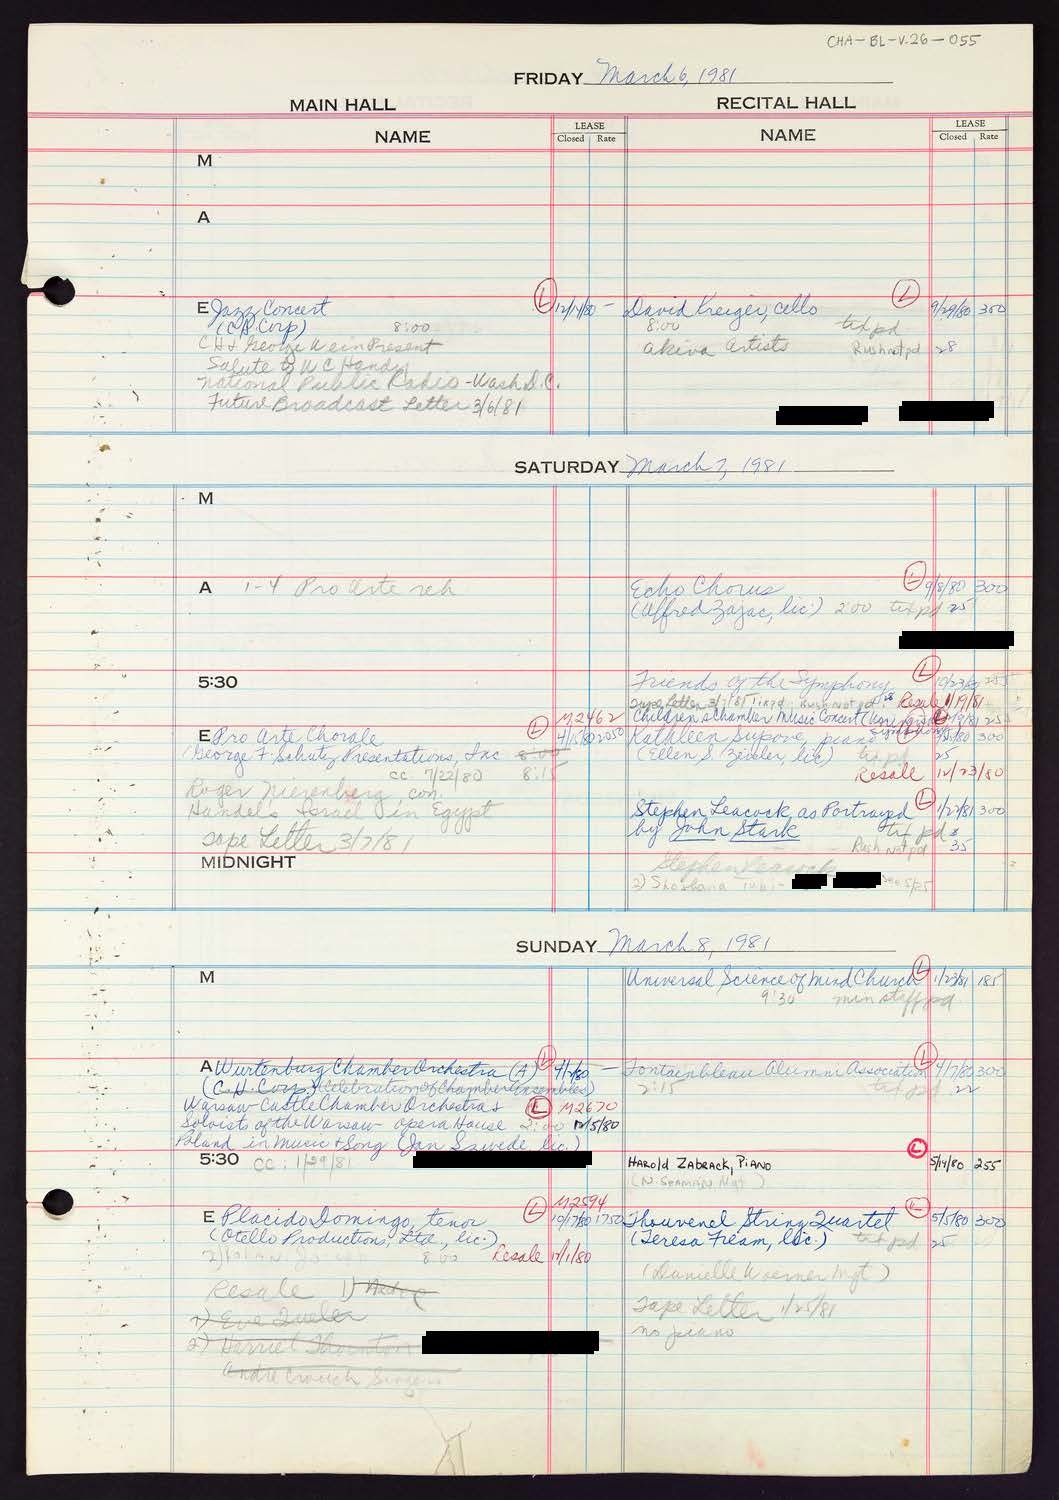 CHA-BL-V.26-055
FRIDAY March 6, 1981
MAIN HALL
RECITAL HALL
NAME
LEASE
Closed Rate
NAME
LEASE
Closed Rate
M
A
E Jazz Concert
(C.H. Corp) 8:00
CH & George Wein Present
Salute to W C Handy
National Public Radio - Wash D.C.
Future Broadcast Letter 3/6/81
L 12/14/80 -
David Kreiger, cello
8:00 txt pd
Akiva Artists Rush not pd 28
L 9/29/80 350
SATURDAY March 7, 1981
M
A 1-4 Pro Arte reh
Echo Chorus
(Alfred Zajac, lic) 2:00 txt pd 25
L 9/8/80 300
5:30
Friends of the Symphony
L 10/23/80 255
Tape Letter Rush Not pd 28 Resale 1/19/81
Children's Chamber Music Concert
E Pro Arte Chorale
L M2462
4/15/80 2050
George F. Schutz Presentations, Inc 8:00
cc. 7/22/80 8:15
Roger Nierenberg con.
Handel's Israel in Egypt
Tape Letter 3/7/81
Kathleen Supove, piano
300
(Ellen S. Zeisler, lic) 25
Resale 12/23/80
Stephen Leacock as Portrayed
L 1/27/81 300
by John Stark txt pd
Rush Not pd 35
MIDNIGHT
Stephen Leacock
2) Shoshana
SUNDAY March 8, 1981
M
Universal Science of Mind Church
L 1/23/81 185
9:30 min staff pd
A Wurtenburg Chamber Orchestra (A)
L 4/2/80 -
(C.H. Corp.) (Celebration of Chamber Ensembles)
Warsaw Castle Chamber Orchestra &
L M2670
Soloists of the Warsaw Opera House 2:00 12/5/80
Poland in Music & Song (Jan Szwede lic.)
Fontainbleau Alumni Association
L 4/7/80 300
2:15 txt pd 22
5:30 CC: 1/29/81
Harold Zabrack, Piano
L 5/14/80 255
(N. Seaman Mgt)
E Placido Domingo, tenor
L M2594
10/17/80 1750
(Otello Productions, Ltd., lic.)
8:00 Resale 12/1/80
Resale 1)
1) Eve Queler
2) Harriet Thornton
Andre Crouch Singers
Thouvenel String Quartet
L 5/5/80 300
(Teresa Fream, lic.) txt pd 25
(Danielle Woerner Mgt)
Tape Letter 1/25/81
no piano